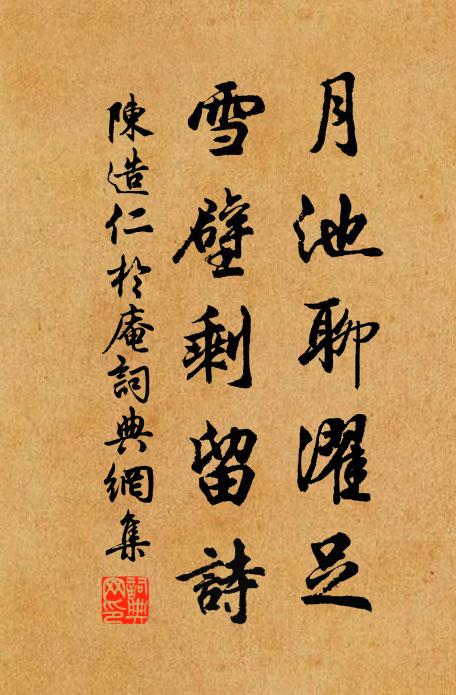 月池聊濯足
雪壁剩留詩
陳造仁於庵詞典網集
詞典網印